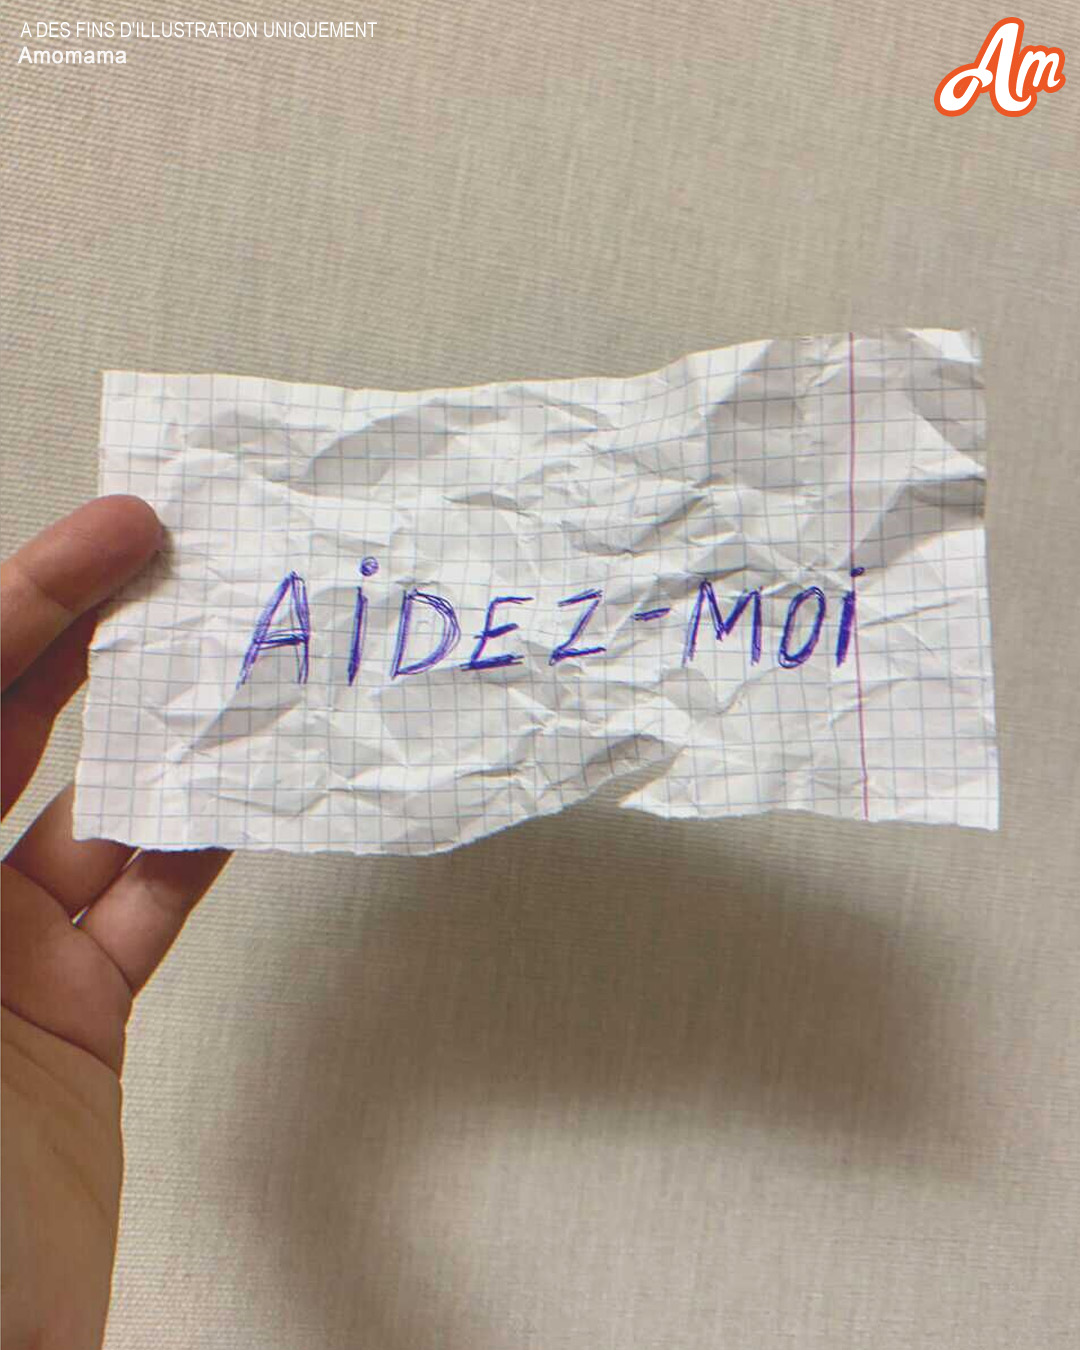 A DES FINS D'ILLUSTRATION UNIQUEMENT
Amomama
Am
AiDEZ-MOi